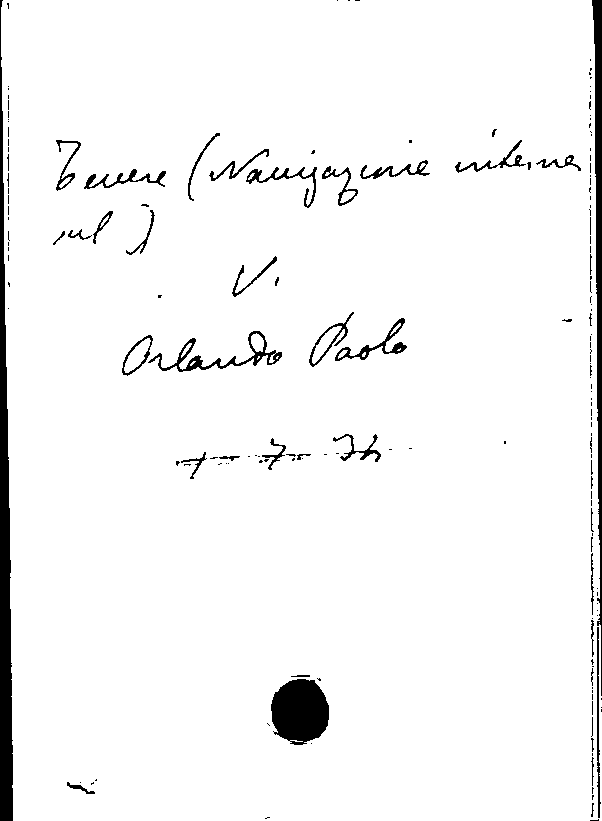 Tevere (Navigazione interna
sul)
V.
Orlando Paolo